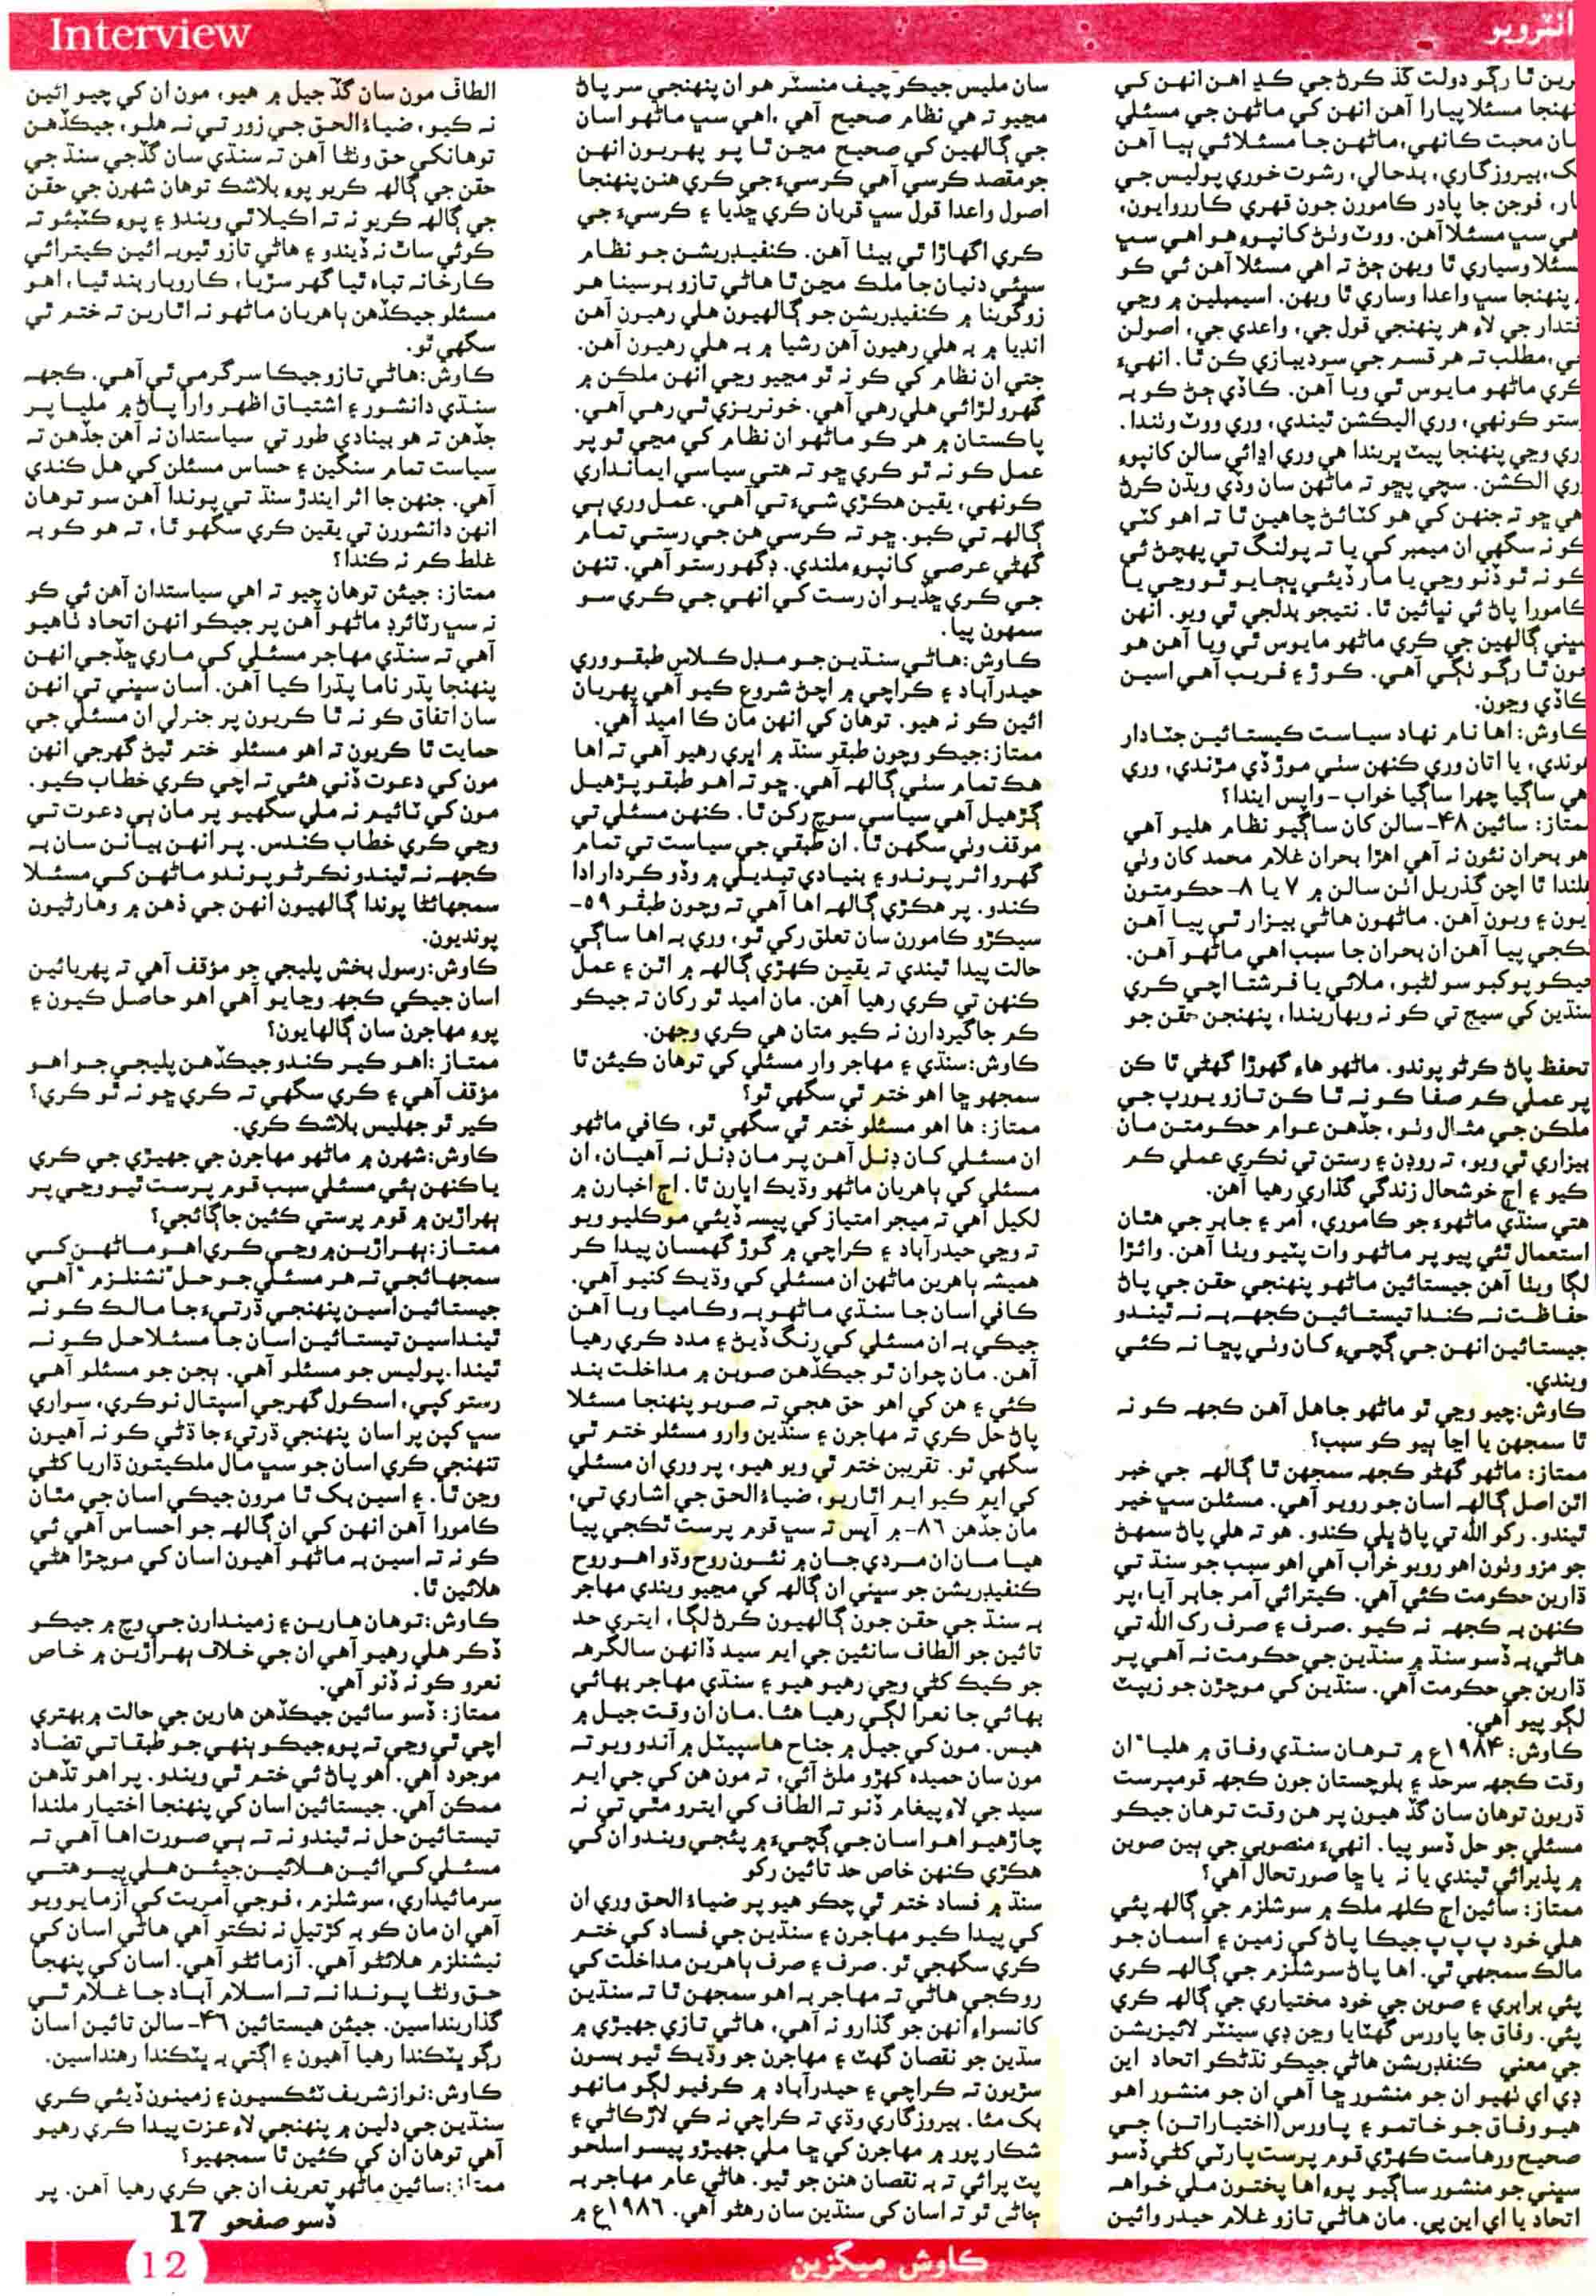 Interview
انٽرويو
ٿا رڳو دولت گڏ ڪرڻ جي ڪڍ آهن انهن کي
پنهنجا مسئلا پيارا آهن انهن کي ماڻهن جي مسئلي
سان محبت ڪانهي، ماڻهن جا مسئلا ئي ٻيا آهن
بيروزگاري، بدحالي، رشوت خوري پوليس جي
فوجن جا پادر ڪامورن جون قهري ڪارروايون،
سڀ مسئلا آهن. ووٽ وٺڻ کانپوءِ هو اهي سڀ
وساري ٿا ويهن ڄڻ ته اهي مسئلا آهن ئي ڪو
پنهنجا سڀ واعدا وساري ٿا ويهن. اسيمبلين ۾ وڃي
جي لاءِ هر پنهنجي قول جي، واعدي جي، اصولن
مطلب ته هر قسم جي سوديبازي ڪن ٿا. انهيءَ
ڪري ماڻهو مايوس ٿي ويا آهن. ڪاڏي ڄڻ ڪو به
رستو ڪونهي، وري اليڪشن ٿيندي، وري ووٽ وٺندا.
وري وڃي پنهنجا پيٽ ڀريندا هي وري اڍائي سالن کانپوءِ
وري الڪشن. سچي پڇو ته ماڻهن سان وڏي ويڌن ڪرڻ
آهي ڇو ته جنهن کي هو کٽائڻ چاهين ٿا ته اهو کٽي
ڪو نه سگهي ان ميمبر کي يا ته پولنگ تي پهچڻ ئي
ڪو نه ٿو ڏنو وڃي يا مار ڏيئي ڀڄايو ٿو وڃي يا
ڪامورا پاڻ ئي نڀائين ٿا. نتيجو بدلجي ٿي ويو. انهن
سڀني ڳالهين جي ڪري ماڻهو مايوس ٿي ويا آهن هو
ٿا رڳو ٺڳي آهي. ڪوڙ ۽ فريب آهي اسين
ڪاڏي وڃون.
ڪاوش: اها نام نهاد سياست ڪيستائين جٽادار
هوندي، يا اتان وري ڪنهن سٺي موڙ ڏي مڙندي، وري
هي ساڳيا چهرا ساڳيا خواب-واپس ايندا؟
ممتاز: سائين ۴۸- سالن کان ساڳيو نظام هليو آهي
هو بحران نئون نه آهي اهڙا بحران غلام محمد کان وٺي
هلندا ٿا اچن گذريل اٺن سالن ۾ ۷ يا ۸- حڪومتون
آيون ۽ ويون آهن. ماڻهون هاڻي بيزار ٿي پيا آهن
ٿڪجي پيا آهن ان بحران جا سبب اهي ماڻهو آهن.
جيڪو پوکبو سو لڻبو، ملائي يا فرشتا اچي ڪري
سنڌين کي سيج تي ڪو نه ويهاريندا، پنهنجن حقن جو
تحفظ پاڻ ڪرڻو پوندو. ماڻهو هاءِ گهوڙا گهڻي ٿا ڪن
پر عملي ڪم صفا ڪو نه ٿا ڪن تازو يورپ جي
ملڪن جي مثال وٺو، جڏهن عوام حڪومتن مان
بيزاري ٿي ويو، ته روڊن ۽ رستن تي نڪري عملي ڪم
ڪيو ۽ اڄ خوشحال زندگي گذاري رهيا آهن.
هتي سنڌي ماڻهوءَ جو ڪاموري، آمر ۽ جابر جي هٿان
استعمال ٿئي پيو پر ماڻهو وات پٽيو ويٺا آهن. وائڙا
لڳا ويٺا آهن جيستائين ماڻهو پنهنجي حقن جي پاڻ
حفاظت نه ڪندا تيستائين ڪجهه به نه ٿيندو
جيستائين انهن جي ڳچيءِ کان وٺي پڇا نه ڪئي
ويندي.
ڪاوش:چيو وڃي ٿو ماڻهو جاهل آهن ڪجهه ڪو نه
ٿا سمجهن يا اڃا ٻيو ڪو سبب؟
ممتاز: ماڻهو گهڻو ڪجهه سمجهن ٿا ڳالهه جي خبر
اٿن اصل ڳالهه اسان جو رويو آهي. مسئلن سڀ خير
ٿيندو. رکو الله تي پاڻ ڀلي ڪندو. هو ته هلي پاڻ سمهڻ
جو مزو وٺون اهو رويو خراب آهي اهو سبب جو سنڌ تي
ڌارين حڪومت ڪئي آهي. ڪيترائي آمر جابر آيا، پر
ڪنهن به ڪجهه نه ڪيو .صرف ۽ صرف رک الله تي
هاڻي به ڏسو سنڌ ۾ سنڌين جي حڪومت نه آهي پر
ڌارين جي حڪومت آهي. سنڌين کي موچڙن جو زيپٽ
لڳو پيو آهي.
ڪاوش: ۱۹۸۴ع ۾ توهان سنڌي وفاق ۾ هليا" ان
وقت ڪجهه سرحد ۽ بلوچستان جون ڪجهه قومپرست
ڌريون توهان سان گڏ هيون پر هن وقت توهان جيڪو
مسئلي جو حل ڏسو پيا. انهيءَ منصوبي جي ٻين صوبن
۾ پذيرائي ٿيندي يا نه يا ڇا صورتحال آهي؟
ممتاز: سائين اڄ ڪلهه ملڪ ۾ سوشلزم جي ڳالهه پئي
هلي خود پ پ پ جيڪا پاڻ کي زمين ۽ آسمان جو
مالڪ سمجهي ٿي. اها پاڻ سوشلزم جي ڳالهه ڪري
پئي برابري ۽ صوبن جي خود مختياري جي ڳالهه ڪري
پئي. وفاق جا پاورس گهٽايا وڃن ڊي سينٽر لائيزيشن
جي معنيٰ ڪنفڊريشن هاڻي جيڪو نڌڻڪو اتحاد اين
ڊي اي ٺهيو ان جو منشور ڇا آهي ان جو منشور اهو
هيو وفاق جو خاتمو ۽ پاورس (اختيارات) جي
صحيح ورهاست ڪهڙي قوم پرست پارٽي کڻي ڏسو
سڀني جو منشور ساڳيو پوءِ اها پختون ملي خواهه
اتحاد يا اي اين پي. مان هاڻي تازو غلام حيدر وائين
سان مليس جيڪو چيف منسٽر هو ان پنهنجي سر پاڻ
مڃيو ته هي نظام صحيح آهي ،اهي سڀ ماڻهو اسان
جي ڳالهين کي صحيح مڃن ٿا پو پهريون انهن
جو مقصد ڪرسي آهي ڪرسيءَ جي ڪري هنن پنهنجا
اصول واعدا قول سڀ قربان ڪري ڇڏيا ۽ ڪرسيءَ جي
ڪري اگهاڙا ٿي بيٺا آهن. ڪنفيڊريشن جو نظام
سڀئي دنيان جا ملڪ مڃن ٿا هاڻي تازو بوسينا هر
زوگوينا ۾ ڪنفيڊريشن جو ڳالهيون هلي رهيون آهن
انڊيا ۾ به هلي رهيون آهن رشيا ۾ به هلي رهيون آهن.
جتي ان نظام کي ڪو نه ٿو مڃيو وڃي انهن ملڪن ۾
گهرو لڙائي هلي رهي آهي. خونريزي ٿي رهي آهي.
پاڪستان ۾ هر ڪو ماڻهو ان نظام کي مڃي ٿو پر
عمل ڪو نه ٿو ڪري ڇو ته هتي سياسي ايمانداري
ڪونهي، يقين هڪڙي شيءِ تي آهي. عمل وري ٻي
ڳالهه تي ڪبو. ڇو ته ڪرسي هن جي رستي تمام
گهڻي عرصي کانپوءِ ملندي. ڊگهو رستو آهي. تنهن
جي ڪري ڇڏيو ان رست کي انهي جي ڪري سو
سمهون پيا.
ڪاوش: هاڻي سنڌين جو مڊل ڪلاس طبقو وري
حيدرآباد ۽ ڪراچي ۾ اچڻ شروع ڪيو آهي پهريان
ائين ڪو نه هيو. توهان کي انهن مان ڪا اميد آهي.
ممتاز: جيڪو وچون طبقو سنڌ ۾ اڀري رهيو آهي ته اها
هڪ تمام سٺي ڳالهه آهي. ڇو ته اهو طبقو پڙهيل
ڳڙهيل آهي سياسي سوچ رکن ٿا. ڪنهن مسئلي تي
موقف وٺي سگهن ٿا. ان طبقي جي سياست تي تمام
گهرو اثر پوندو ۽ بنيادي تبديلي ۾ وڏو ڪردار ادا
ڪندو. پر هڪڙي ڳالهه اها آهي ته وچون طبقو ۵۹-
سيڪڙو ڪامورن سان تعلق رکي ٿو، وري به اها ساڳي
حالت پيدا ٿيندي ته يقين ڪهڙي ڳالهه ۾ اٿن ۽ عمل
ڪنهن تي ڪري رهيا آهن. مان اميد ٿو رکان ته جيڪو
ڪم جاگيردارن نه ڪيو متان هي ڪري وجهن.
ڪاوش:سنڌي ۽ مهاجر وار مسئلي کي توهان ڪيئن ٿا
سمجهو ڇا اهو ختم ٿي سگهي ٿو؟
ممتاز: ها اهو مسئلو ختم ٿي سگهي ٿو، ڪافي ماڻهو
ان مسئلي کان ڊنل آهن پر مان ڊنل نه آهيان، ان
مسئلي کي ٻاهريان ماڻهو وڌيڪ اڀارن ٿا. اڄ اخبارن ۾
لکيل آهي ته ميجر امتياز کي پيسه ڏيئي موڪليو ويو
ته وڃي حيدرآباد ۽ ڪراچي ۾ گوڙ گهمسان پيدا ڪر
هميشه ٻاهرين ماڻهن ان مسئلي کي وڌيڪ کنيو آهي.
ڪافي اسان جا سنڌي ماڻهو به وڪاميا ويا آهن
جيڪي به ان مسئلي کي رنگ ڏيڻ ۽ مدد ڪري رهيا
آهن. مان چوان ٿو جيڪڏهن صوبن ۾ مداخلت بند
ڪئي ۽ هن کي اهو حق هجي ته صوبو پنهنجا مسئلا
پاڻ حل ڪري ته مهاجرن ۽ سنڌين وارو مسئلو ختم ٿي
سگهي ٿو. تقريبن ختم ٿي ويو هيو، پر وري ان مسئلي
کي ايم ڪيو ايم اٿاريو، ضياءَ الحق جي اشاري تي،
مان جڏهن ۸٦- ۾ آيس ته سڀ قوم پرست ٿڪجي پيا
هيا مان ان مردي جان ۾ نئون روح وڌو اهو روح
ڪنفيڊريشن جو سڀني ان ڳالهه کي مڃيو ويندي مهاجر
به سنڌ جي حقن جون ڳالهيون ڪرڻ لڳا، ايتري حد
تائين جو الطاف سائين جي ايم سيد ڏانهن سالگرهه
جو ڪيڪ کڻي وڃي رهيو هيو ۽ سنڌي مهاجر ڀهائي
ڀهائي جا نعرا لڳي رهيا هئا. مان ان وقت جيل ۾
هيس. مون کي جيل ۾ جناح هاسپيٽل ۾ آندو ويو ته
مون سان حميده کهڙو ملڻ آئي، ته مون هن کي جي ايم
سيد جي لاءِ پيغام ڏنو ته الطاف کي ايترو مٿي تي نه
چاڙهيو اهو اسان جي ڳچيءَ ۾ پئجي ويندو ان کي
هڪڙي ڪنهن خاص حد تائين رکو
سنڌ ۾ فساد ختم ٿي چڪو هيو پر ضياءَ الحق وري ان
کي پيدا ڪيو مهاجرن ۽ سنڌين جي فساد کي ختم
ڪري سگهجي ٿو. صرف ۽ صرف ٻاهرين مداخلت کي
روڪجي هاڻي ته مهاجر به اهو سمجهن ٿا ته سنڌين
کانسواءِ انهن جو گذارو نه آهي، هاڻي تازي جهيڙي ۾
سڌين جو نقصان گهٽ ۽ مهاجرن جو وڌيڪ ٿيو بسون
سڙيون ته ڪراچي ۽ حيدرآباد ۾ ڪرفيو لڳو مانهو
بک مئا. بيروزگاري وڌي ته ڪراچي نه کي لاڙڪاڻي ۽
شڪارپور ۾ مهاجرن کي ڇا ملي جهيڙو پيسو اسلحو
پٽ پرائي ته به نقصان هنن جو ٿيو. هاڻي عام مهاجر به
ڄاڻي ٿو ته اسان کي سنڌين سان رهڻو آهي. ۱۹۸٦ع ۾
الطاف مون سان گڏ جيل ۾ هيو، مون ان کي چيو ائين
نه ڪيو، ضياءَ الحق جي زور تي نه هلو، جيڪڏهن
توهانکي حق وٺڻا آهن ته سنڌي سان گڏجي سنڌ جي
حقن جي ڳالهه ڪريو پوءِ بلاشڪ توهان شهرن جي حقن
جي ڳالهه ڪريو نه ته اڪيلا ٿي ويندؤ ۽ پوءِ ڪٽبئو ته
ڪوئي ساٿ نه ڏيندو ۽ هاڻي تازو ٿيو به ائين ڪيترائي
ڪارخانه تباه ٿيا گهر سڙيا، ڪاروبار بند ٿيا، اهو
مسئلو جيڪڏهن ٻاهريان ماڻهو نه اٿارين ته ختم ٿي
سگهي ٿو.
ڪاوش: هاڻي تازو جيڪا سرگرمي ٿي آهي. ڪجهه
سنڌي دانشور ۽ اشتياق اظهر وارا پاڻ ۾ مليا پر
جڏهن ته هو بينادي طور تي سياستدان نه آهن جڏهن ته
سياست تمام سنگين ۽ حساس مسئلن کي هل ڪندي
آهي. جنهن جا اثر ايندڙ سنڌ تي پوندا آهن سو توهان
انهن دانشورن تي يقين ڪري سگهو ٿا، ته هو ڪو به
غلط ڪم نه ڪندا؟
ممتاز: جيئن توهان چيو ته اهي سياستدان آهن ئي ڪو
نه سڀ رٽائرڊ ماڻهو آهن پر جيڪو انهن اتحاد ٺاهيو
آهي ته سنڌي مهاجر مسئلي کي ماري ڇڏجي انهن
پنهنجا پڌر ناما پڌرا ڪيا آهن. اسان سڀني تي انهن
سان اتفاق ڪو نه ٿا ڪريون پر جنرلي ان مسئلي جي
حمايت ٿا ڪريون ته اهو مسئلو ختم ٿيڻ گهرجي انهن
مون کي دعوت ڏني هئي ته اچي ڪري خطاب ڪيو.
مون کي ٽائيم نه ملي سگهيو پر مان ٻي دعوت تي
وڃي ڪري خطاب ڪندس. پر انهن بيانن سان به
ڪجهه نه ٿيندو نڪرڻو پوندو ماڻهن کي مسئلا
سمجهائڻا پوندا ڳالهيون انهن جي ذهن ۾ وهارڻيون
پونديون.
ڪاوش:رسول بخش پليجي جو مؤقف آهي ته پهريائين
اسان جيڪي ڪجهه وڃايو آهي اهو حاصل ڪيون ۽
پوءِ مهاجرن سان ڳالهايون؟
ممتاز :اهو ڪير ڪندو جيڪڏهن پليجي جو اهو
مؤقف آهي ۽ ڪري سگهي ته ڪري ڇو نه ٿو ڪري؟
ڪير ٿو جهليس بلاشڪ ڪري.
ڪاوش:شهرن ۾ ماڻهو مهاجرن جي جهيڙي جي ڪري
يا ڪنهن ٻئي مسئلي سبب قوم پرست ٿيو وڃي پر
ٻهراڙين ۾ قوم پرستي ڪئين جاڳائجي؟
ممتاز: ٻهراڙين ۾ وڃي ڪري اهو ماڻهن کي
سمجهائجي ته هر مسئلي جو حل "نشنلزم" آهي
جيستائين اسين پنهنجي ڌرتيءَ جا مالڪ ڪو نه
ٿينداسين تيستائين اسان جا مسئلا حل ڪو نه
ٿيندا .پوليس جو مسئلو آهي. ٻجن جو مسئلو آهي
رستو کپي، اسڪول گهرجي اسپتال نوڪري، سواري
سڀ کپن پر اسان پنهنجي ڌرتيءَ جا ڌڻي ڪو نه آهيون
تنهنجي ڪري اسان جو سڀ مال ملڪيتون ڌاريا کڻي
وڃن ٿا. ۽ اسين بک ٿا مرون جيڪي اسان جي مٿان
ڪامورا آهن انهن کي ان ڳالهه جو احساس آهي ئي
ڪو نه ته اسين به ماڻهو آهيون اسان کي موچڙا هڻي
هلائين ٿا.
ڪاوش: توهان هارين ۽ زميندارن جي وچ ۾ جيڪو
ڏڪر هلي رهيو آهي ان جي خلاف ٻهراڙين ۾ خاص
نعرو ڪو نه ڏنو آهي.
ممتاز: ڏسو سائين جيڪڏهن هارين جي حالت ۾ بهتري
اچي ٿي وڃي ته پوءِ جيڪو ٻنهي جو طبقاتي تضاد
موجود آهي. اهو پاڻ ئي ختم ٿي ويندو. پر اهو تڏهن
ممڪن آهي. جيستائين اسان کي پنهنجا اختيار ملندا
تيستائين حل نه ٿيندو نه ته ٻي صورت اها آهي ته
مسئلي کي ائين هلائين جيئن هلي پيو هتي
سرمائيداري، سوشلزم، فوجي آمريت کي آزمايو ويو
آهي ان مان ڪو به کڙتيل نه نڪتو آهي هاڻي اسان کي
نيشنلزم هلائڻو آهي. آزمائڻو آهي. اسان کي پنهنجا
حق وٺڻا پوندا نه ته اسلام آباد جا غلام ٿي
گذارينداسين. جيئن هيستائين ۴٦- سالن تائين اسان
رڳو ڀٽڪندا رهيا آهيون ۽ اڳتي به ڀٽڪندا رهنداسين.
ڪاوش: نواز شريف ٽئڪسيون ۽ زمينون ڏيئي ڪري
سنڌين جي دلين ۾ پنهنجي لاءِ عزت پيدا ڪري رهيو
آهي توهان ان کي ڪئين ٿا سمجهيو؟
ممتاز: سائين ماڻهو تعريف ان جي ڪري رهيا آهن. پر
ڏسو صفحو 17
12
ڪاوش ميگزين